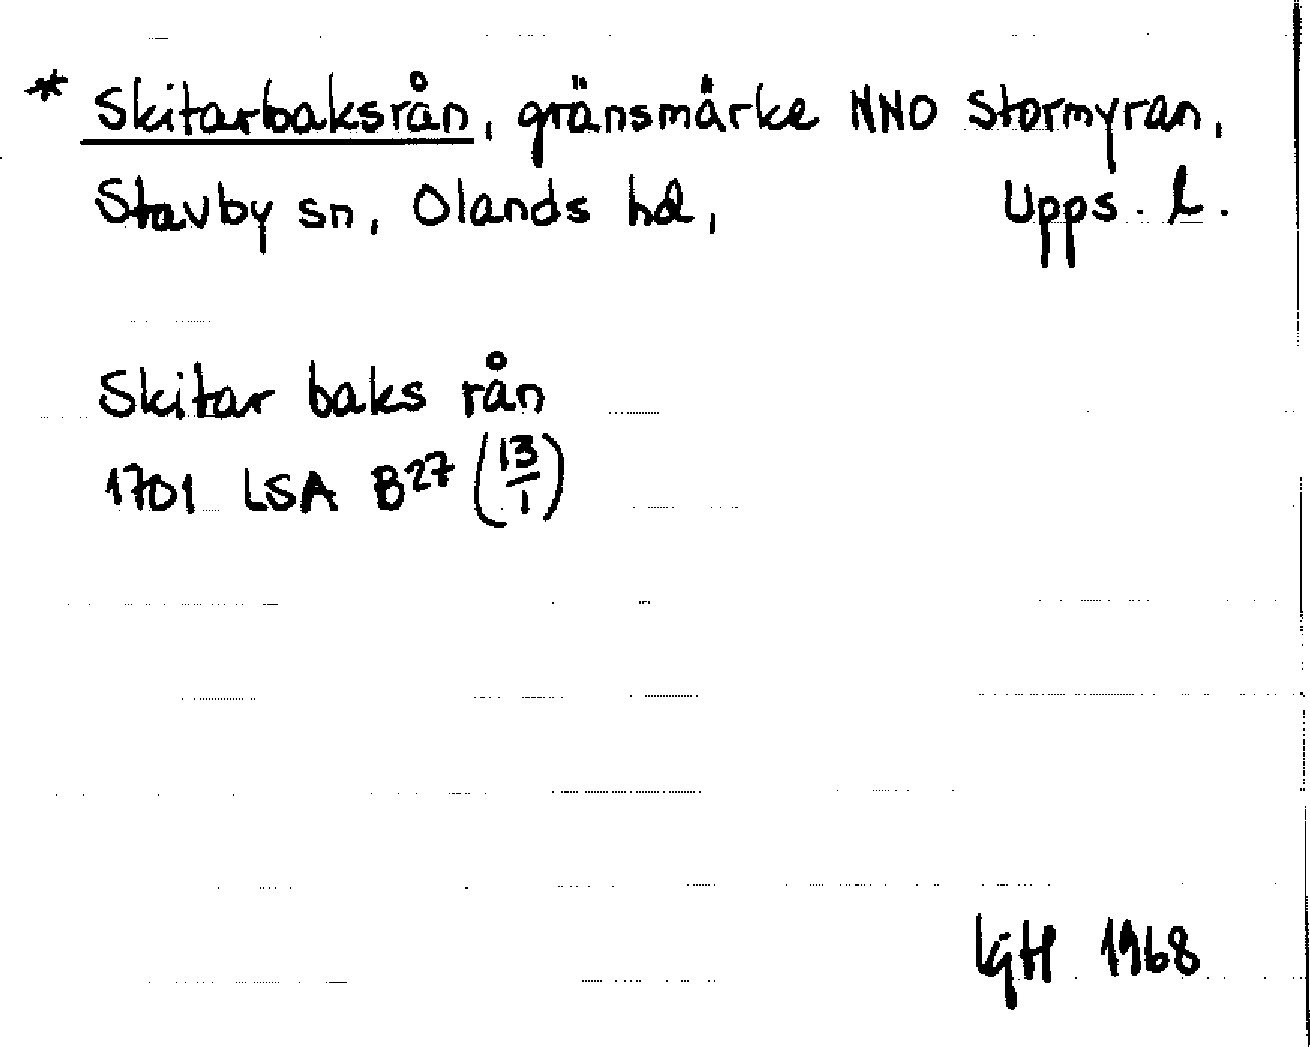 * Skitarbaksrån, gränsmärke NNO Stormyran,
Stavby sn, Olands hd, Upps. l.
Skitar baks rån
1701 LSA B27 (13/1)
1968